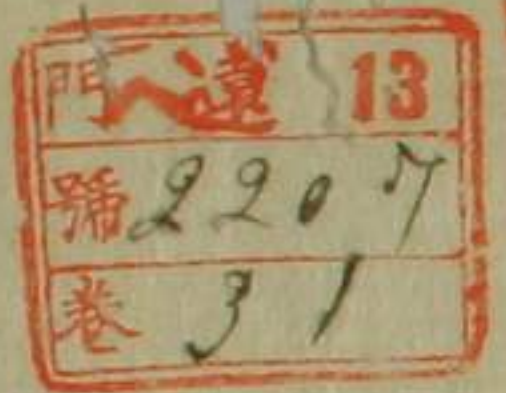 門 ヘ遠 13
號 2207
卷 31